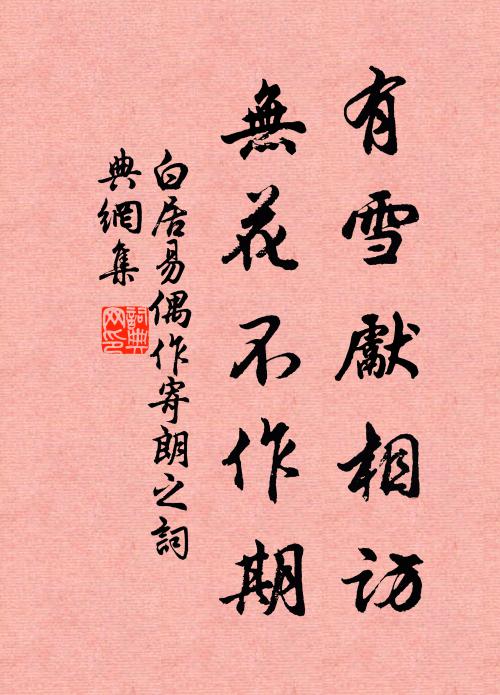 有雪獻相訪
無花不作期
白居易偶作寄朗之詞
典網集
詞典
网印